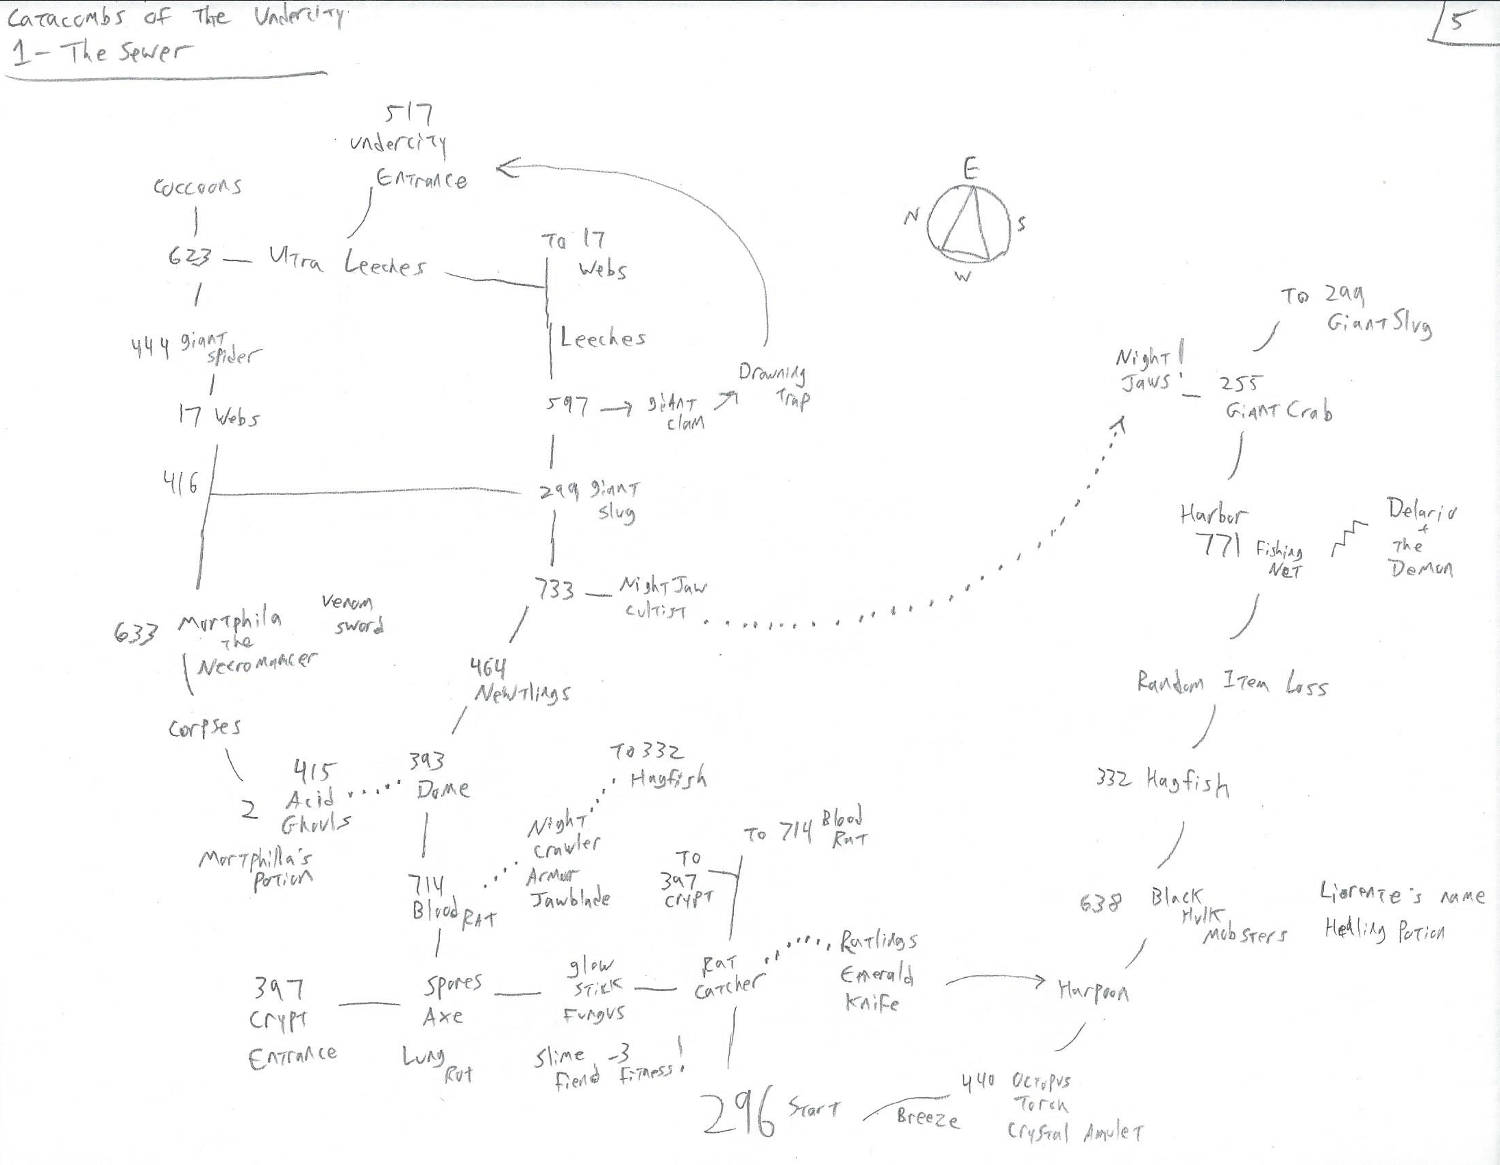 Catacombs of The Undercity
1 - The Sewer
5
517
Undercity
Entrance
E
N
S
W
Coccoons
623
Ultra Leeches
To 17
Webs
Leeches
444 giant
spider
17 Webs
597
giant
clam
Drowning
Trap
416
299 giant
slug
733
Night Jaw
cultist
633 Mortphila
the
Necromancer
Venom
sword
464
Newtlings
Corpses
2
415
Acid
Ghouls
Mortphilla's
Potion
393
Dome
To 332
Hagfish
Night
Crawler
Armor
Jawblade
714
Blood Rat
To 714 Blood
Rat
To
397
Crypt
397
Crypt
Entrance
Spores
Axe
Lung
Rot
glow
stick
Fungus
Slime
Fiend
-3
Fitness!
Rat
Catcher
Ratlings
Emerald
Knife
296 Start
Breeze
440 Octopus
Torch
Crystal Amulet
Harpoon
638 Black
Hulk
Mobsters
Liorente's name
Healing Potion
332 Hagfish
Random Item Loss
Harbor
771 Fishing
Net
Delario
+
The
Demon
Night
Jaws!
255
Giant Crab
To 299
Giant Slug